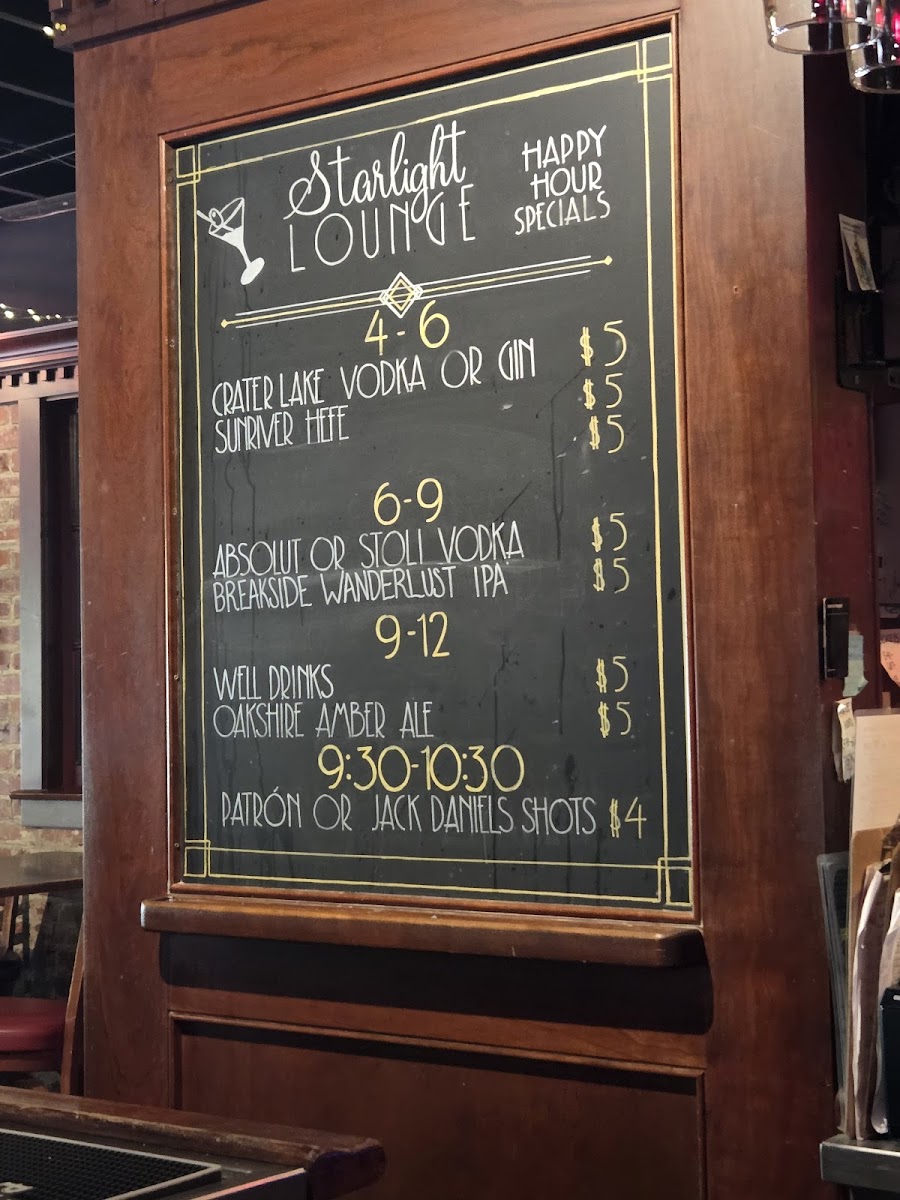 Starlight
LOUNGE
HAPPY
HOUR
SPECIALS
4-6
$5
CRATER LAKE VODKA OR GIN $5
SUNRIVER HEFE $5
6-9
ABSOLUT OR STOLI VODKA $5
BREAKSIDE WANDERLUST IPA $5
9-12
WELL DRINKS $5
OAKSHIRE AMBER ALE $5
9:30-10:30
PATRÓN OR JACK DANIELS SHOTS $4